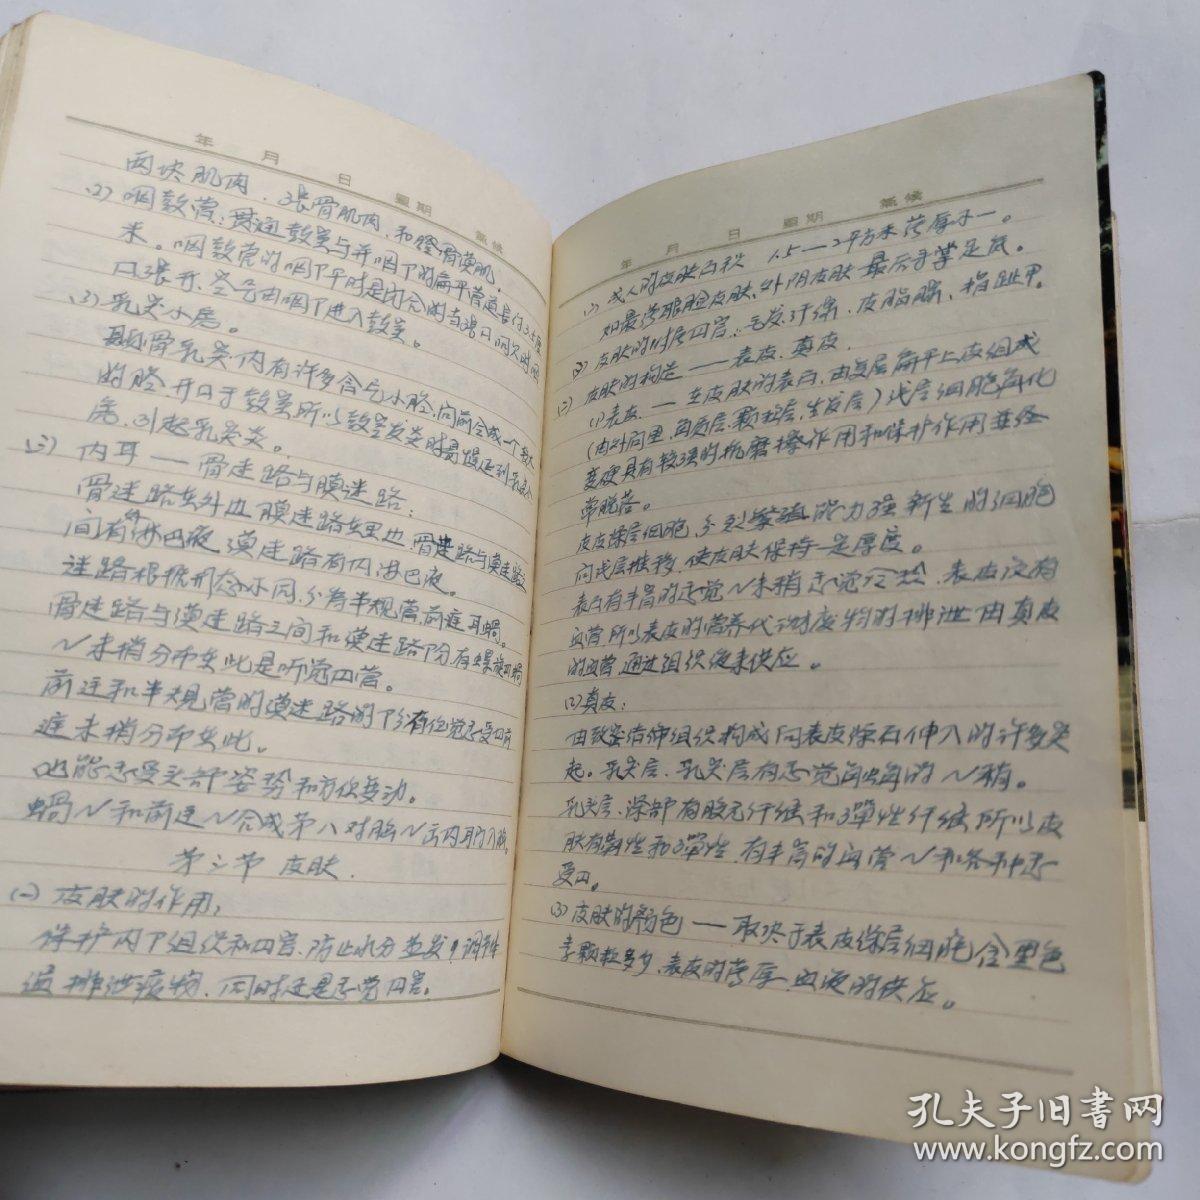 年 月 日 星期 气候
两块肌肉.张骨肌肉,和镫骨漠肌。
(2)咽鼓管:贯通鼓室与井咽下的扁平管道长付3.5厘
米。咽鼓管的咽下平时是闭合
口张开,空气由咽下进入鼓室。
(3)乳突小房。
颞骨乳突内有许多含气小腔,向前合成一个较大
的腔,开口于鼓室所以鼓室发炎时易
房,引起乳突炎。
(三)内耳—骨迷路与膜迷路:
骨迷路在外边,膜迷路在里边,骨迷路与漠迷路之
间有外淋巴液,漠迷路有内淋巴液。
迷路根据形态不同,分为半规管前庭耳蜗。
骨迷路与漠迷路之间和漠迷路下分,有螺旋四
~末梢分布在此是听觉四管。
前迁和半规管的漠迷路的下分有位觉感受四前
庭末梢分布在此。
也能感受头部姿势和方位变动。
蜗~和前迁~合成第八对脑~去内耳门入脑。
第三节 皮肤.
(一)皮肤的作用:
保护内下组织和四官.防止水分蒸发,调节体
温排泄废物、同时还是感觉四官。
年 月 日 星期 气候
(1)成人的皮肤面积 1.5—2平方米 薄厚不一。
如最薄眼脸皮肤,外阴皮肤 最后手掌足底。
(2)皮肤的付属四官:毛发汗线、皮脂腺、指趾甲
(二)皮肤的构造——表皮.真皮.
(1)表皮.—在皮肤的表面,由复层扁平上皮组成
(由外向里,角质层.颗粒层,生发层)浅层细胞角化
变硬具有较强的抗磨擦作用和保护作用并经
常脱落。
皮皮深层细胞,分裂繁殖能力强新生的细胞
向浅层推移,使皮肤保持一定厚度。
表面有丰富的感觉~末梢感觉冷热.表皮没有
血管所以表皮的营养代谢废物的排泄由真皮
的血管通过组织后来供应。
(2)真皮:
由致密结伸组织构成向表皮深面伸入的许多突
起。乳头层.乳头层有感觉的~稍。
乳头层.深部有胶元纤继和弹性纤继所以皮
肤有韧性和弹性,有丰富的血管~和各种感
受四。
(3)皮肤的颜色——取决于表皮深层细胞含黑色
素颗粒多少、表皮的薄厚、血液的供应。
孔夫子旧书网
www.kongfz.com